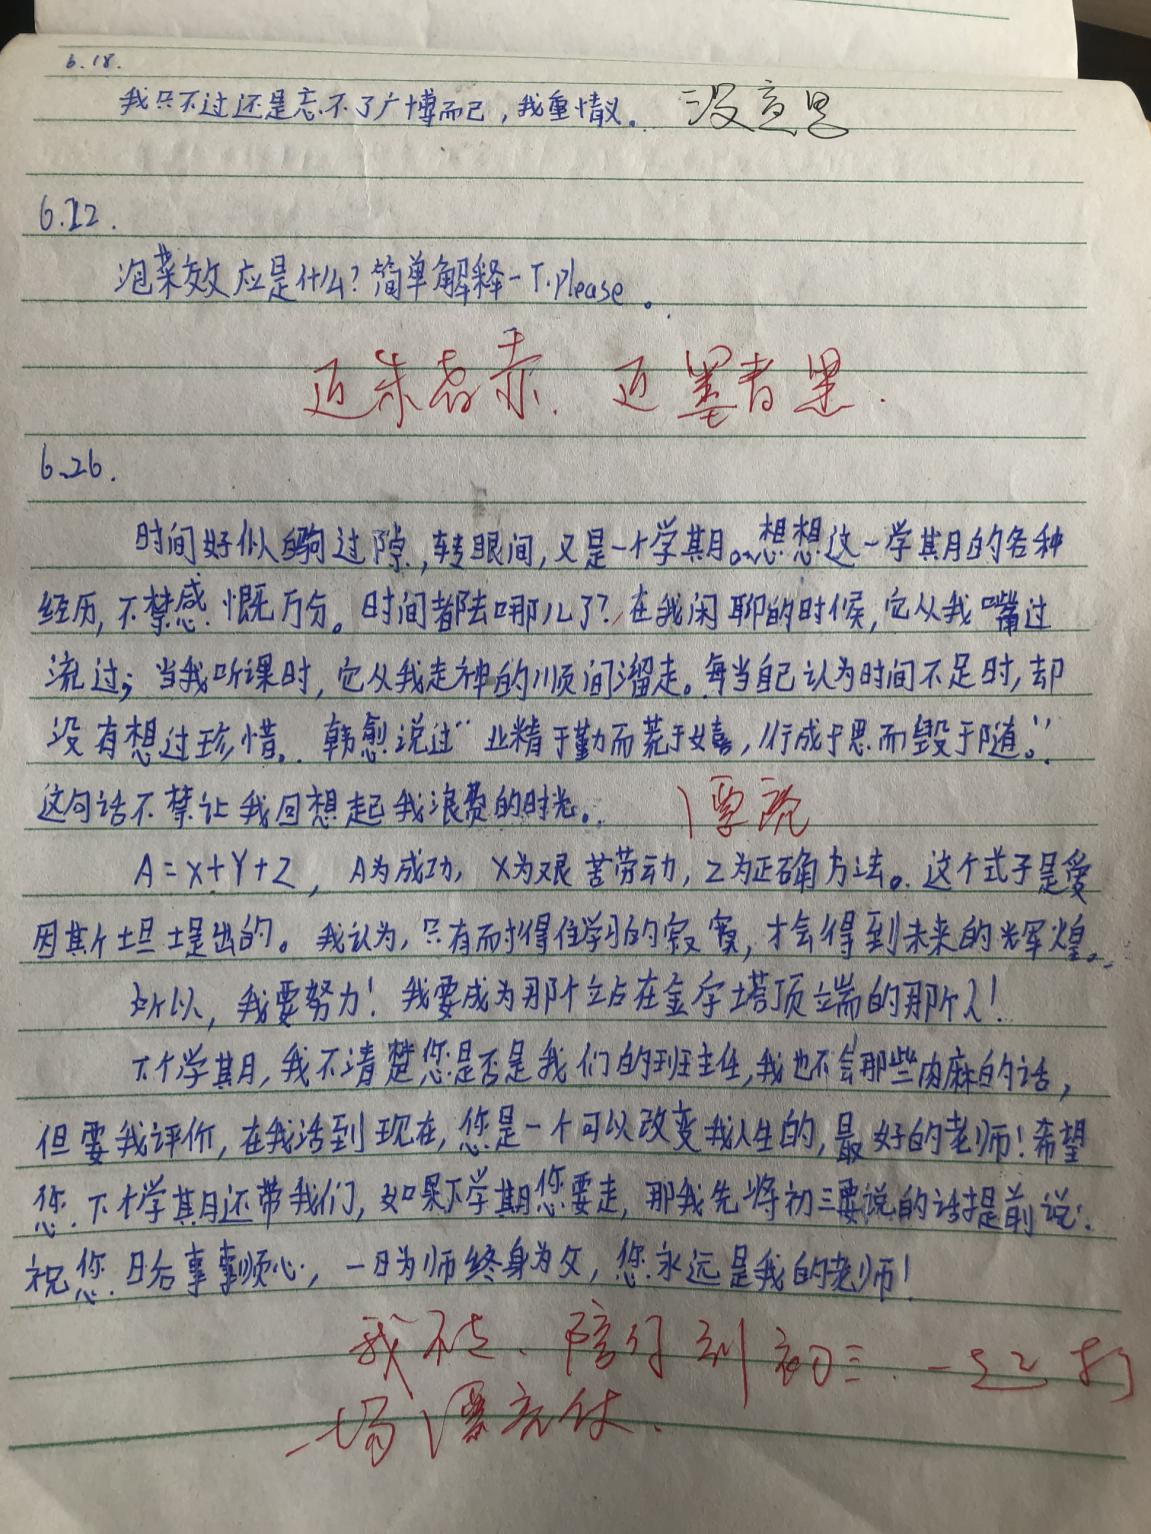 6.18.
我只不过还是忘不了广博而已，我重情义。 没意思
6.22.
泡菜效应是什么？简单解释一下.Please。
近朱者赤.近墨者黑.
6.26.
时间好似白驹过隙，转眼间，又是一个学期。想想这一学期的各种
经历，不禁感慨万分。时间都去哪儿了？在我闲聊的时候，它从我嘴边
流过；当我听课时，它从我走神的瞬间溜走。每当自己认为时间不足时，却
没有想过珍惜。韩愈说过“业精于勤而荒于嬉，行成于思而毁于随。”
这句话不禁让我回想起我浪费的时光。 漂亮
A=X+Y+Z，A为成功，X为艰苦劳动，Z为正确方法。这个式子是爱
因斯坦提出的。我认为，只有耐得住学习的寂寞，才会得到未来的辉煌。
所以，我要努力！我要成为那个站在金字塔顶端的那个人！
下个学期，我不清楚您是否是我们的班主任，我也不会那些肉麻的话，
但要我评价，在我活到现在，您是一个可以改变我人生的，最好的老师！希望
您下个学期还带我们，如果下学期您要走，那我先将初三要说的话提前说：
祝您日后事事顺心，一日为师终身为父，您永远是我的老师！
我不走、陪你到初三.一起打
一场漂亮仗.